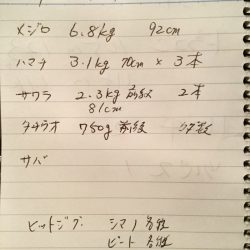 メジロ 6.8kg 92cm
ハマチ 3.1kg 70cm × 3本
サワラ 2.3kg 前后 2本
81cm
タチウオ 750g 前后 多数
サバ
ヒットジグ シマノ各種
ビート各種